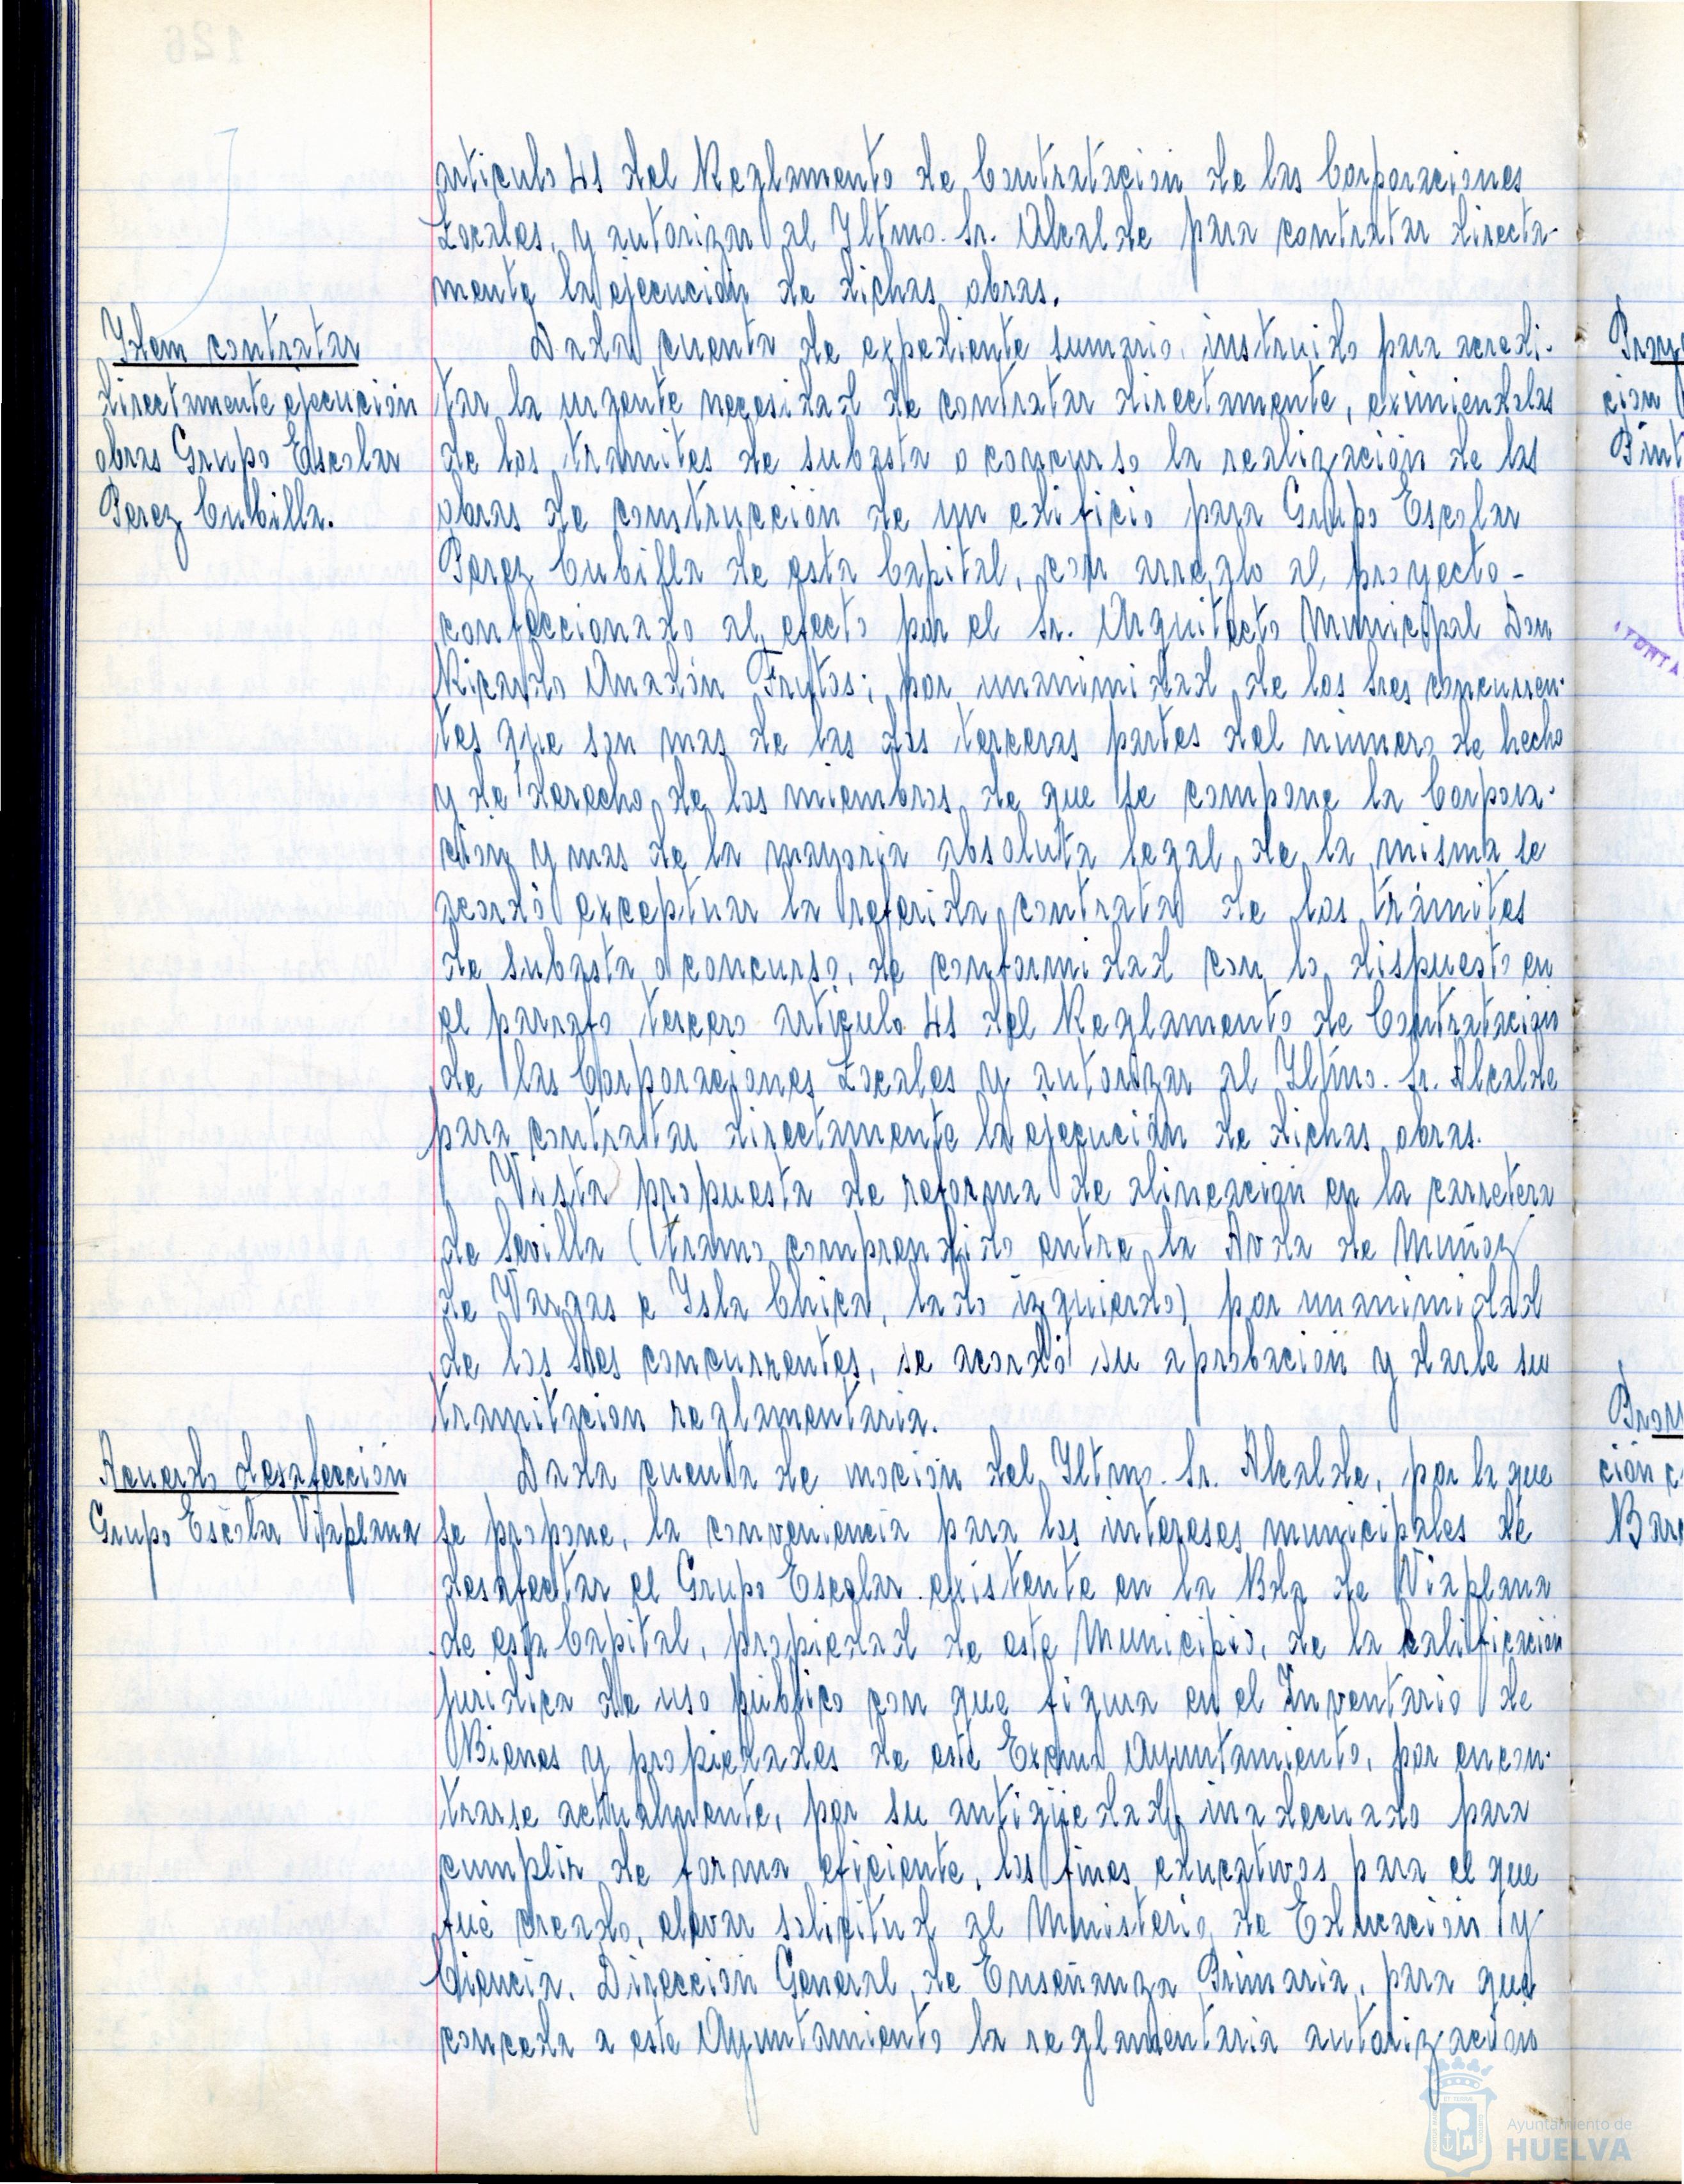 articulo 41 del Reglamento de Contratacion de las Corporaciones
Locales, y autorizar al Iltmo. Sr. Alcalde para contratar directa-
mente la ejecución de dichas obras.
Idem contratar
directamente ejecucion
obras Grupo Escolar
Perez Cubilla.
Dada cuenta de expediente sumario, instruido para acredi-
tar la urgente necesidad de contratar directamente, eximiendolas
de los tramites de subasta o concurso la realización de las
obras de construcción de un edificio para Grupo Escolar
Perez Cubilla de esta Capital, con arreglo al proyecto-
confeccionado al efecto por el Sr. Arquitecto Municipal Don
Ricardo Anadón Frutos; por unanimidad de los Sres concurren-
tes que son mas de las dos terceras partes del número de hecho
y de derecho de los miembros de que se compone la Corpora-
cion y mas de la mayoria absoluta legal de la misma se
acordó exceptuar la referida contrata de los trámites
de subasta o concurso, de conformidad con lo dispuesto en
el parrafo tercero articulo 41 del Reglamento de Contratacion
de las Corporaciones Locales y autorizar al Iltmo. Sr. Alcalde
para contratar directamente la ejecución de dichas obras.
Vista propuesta de reforma de alineación en la carretera
de Sevilla (tramo comprendido entre la Avda de Muñoz
de Vargas e Isla Chica, lado izquierdo) por unanimidad
de los Sres concurrentes, se acordó su aprobación y darle su
tramitacion reglamentaria.
Acuerdo desafección
Grupo Escolar Viaplana
Dada cuenta de moción del Iltmo. Sr. Alcalde, por la que
se propone, la conveniencia para los intereses municipales de
desafectar el Grupo Escolar existente en la Bda de Viaplana
de esta Capital, propiedad de este Municipio, de la calificacion
juridica de uso público con que figura en el Inventario de
Bienes y propiedades de este Excmo Ayuntamiento, por encon-
trarse actualmente, por su antigüedad, inadecuado para
cumplir de forma eficiente, los fines educativos para el que
fué creado, elevar solicitud al Ministerio de Educación y
Ciencia, Dirección General de Enseñanza Primaria, para que
conceda a este Ayuntamiento la reglamentaria autorizacion
Ayuntamiento de
HUELVA